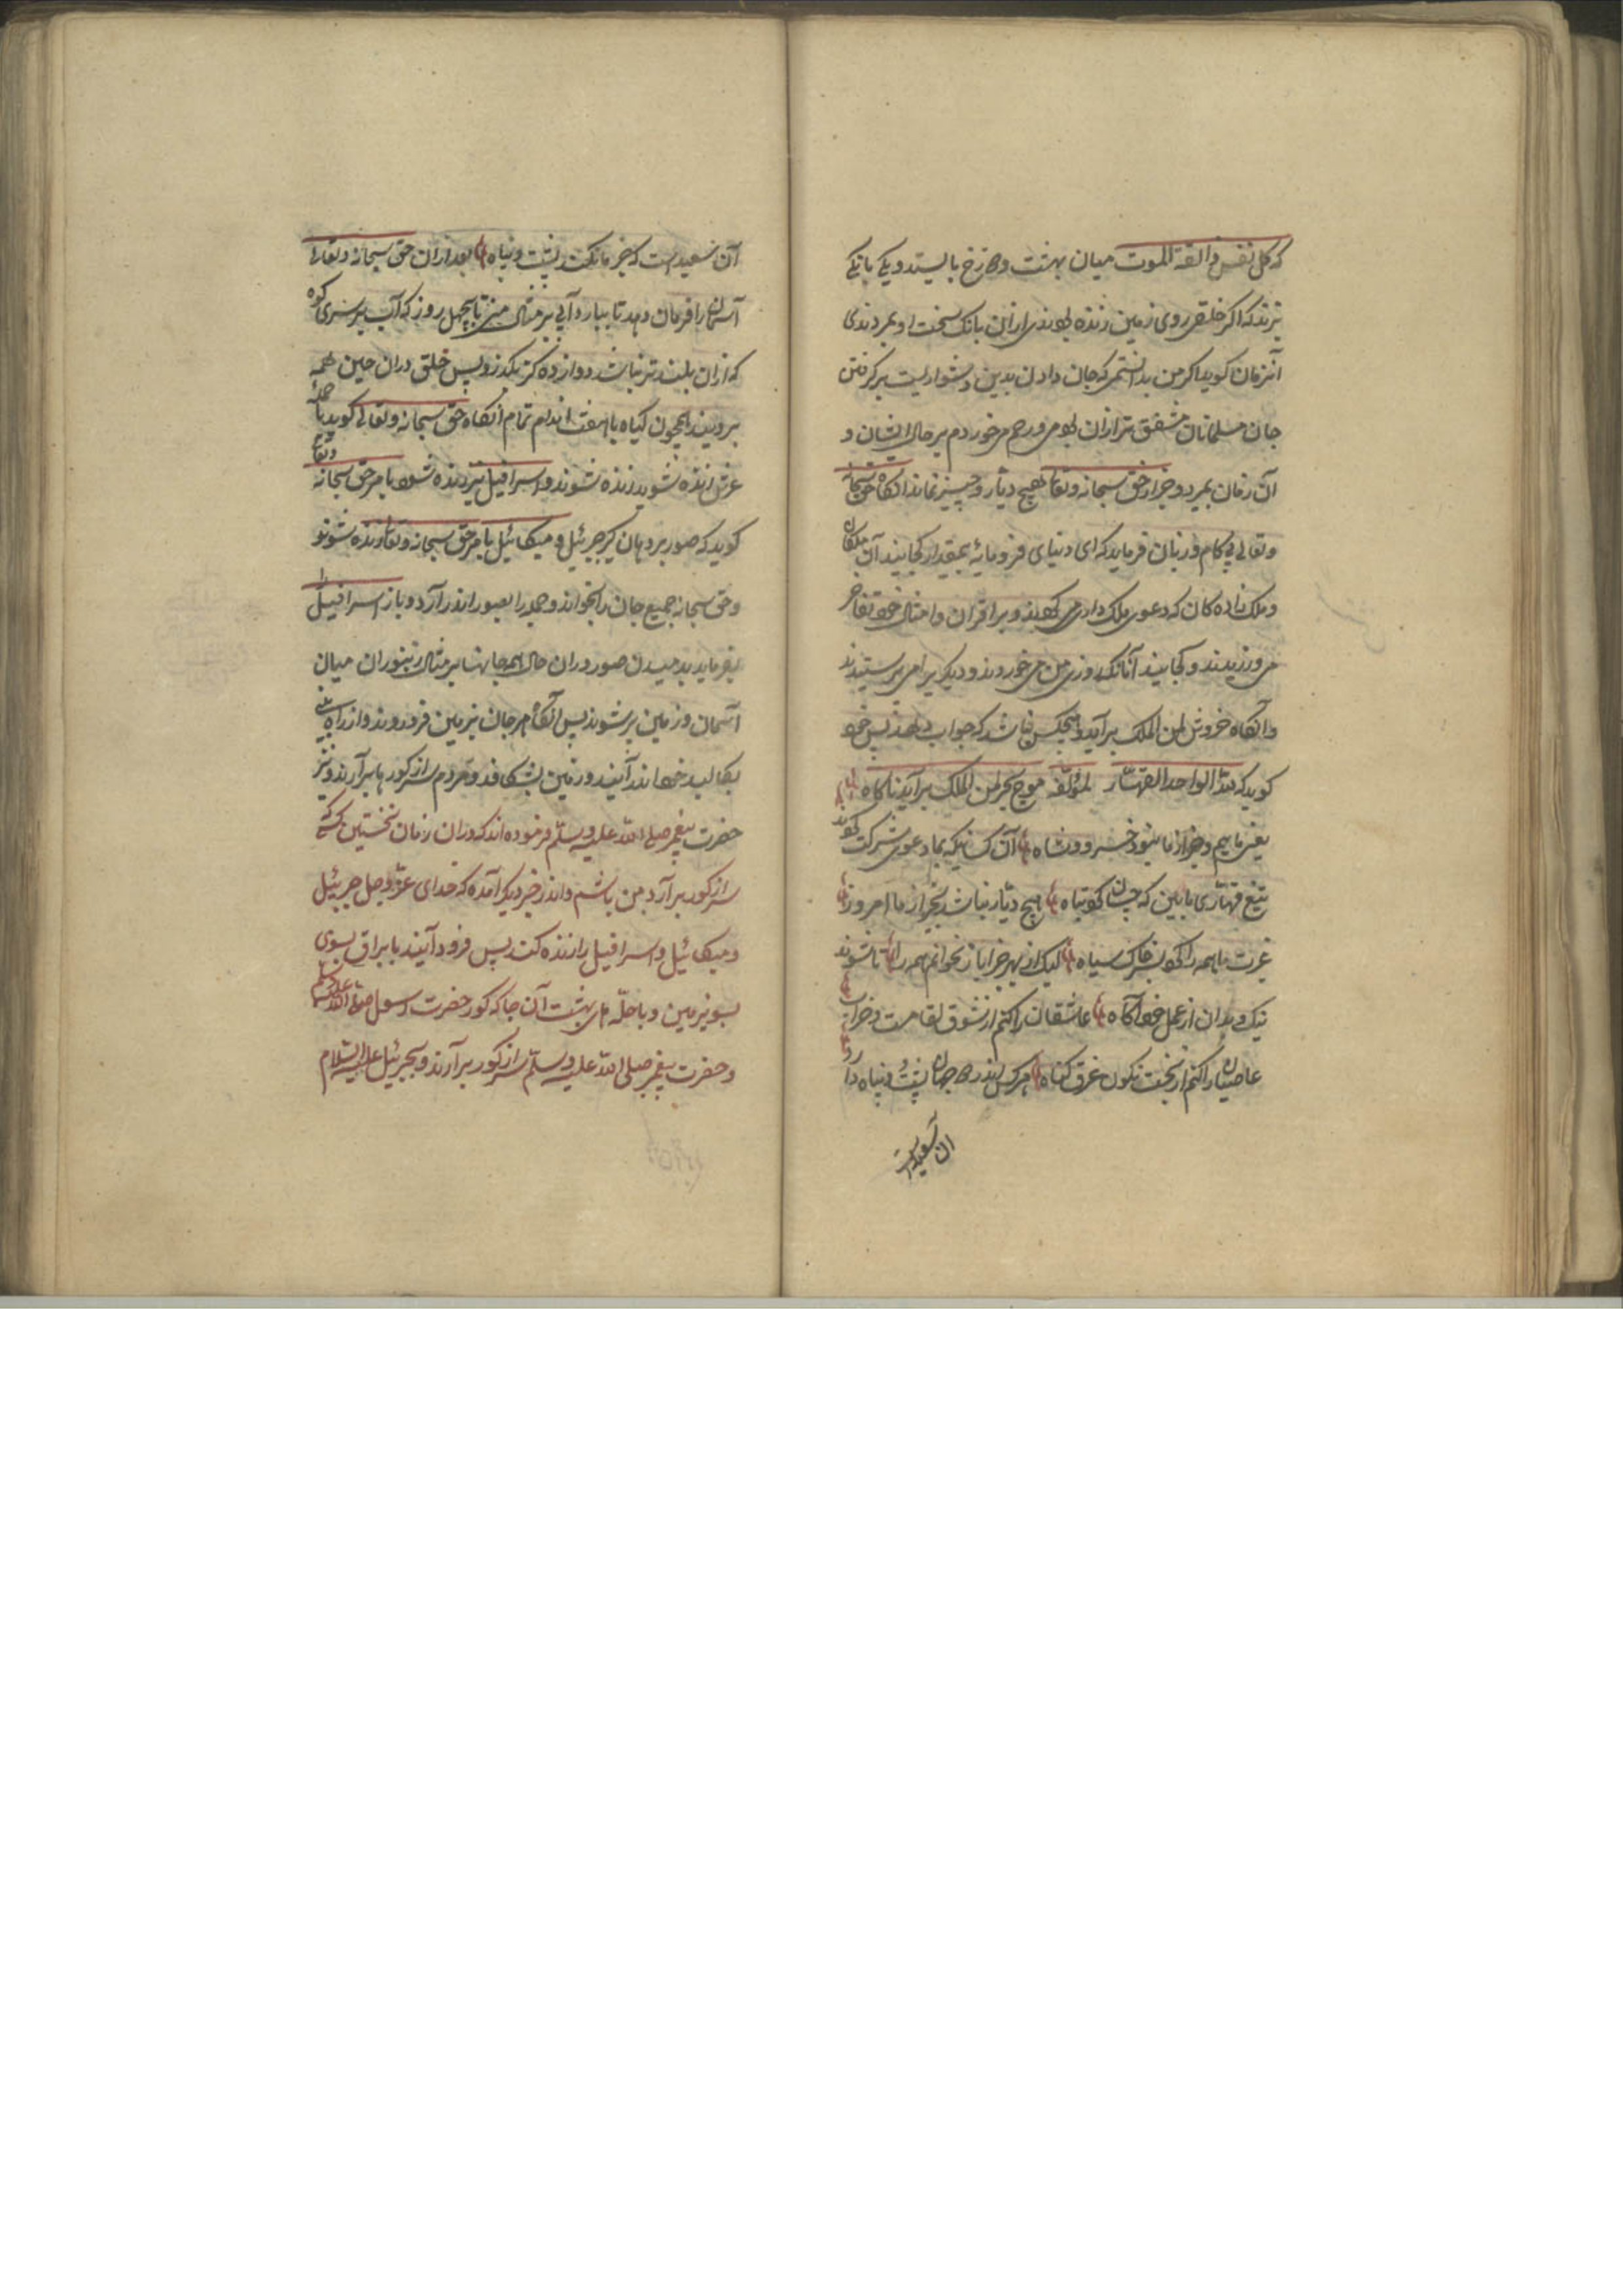 که کل نفس ذائقة الموت میان بهشت و دوزخ بایستد و یکی بانگی
بزند که اگر خلقی روی زمین زنده بودندی ازان بانگ سخت او بمردندی
آنزمان کوید اگر من بدانستمی که جان دادن بدین دشواریست بر گرفتن
جان مسلمانان مشفق تر ازان بودمی و رحم میخوردم بر حال ایشان و
آن زمان بمیرد و جز از حق سبحانه و تعالی هیچ دیار و چیز نماند انگاه حق سبحانه
و تعالی بی کام و زبان فرماید که ای دنیای فرومایۀ بیمقدار کجایند آن ملکان
و ملک زاده کان که دعوی ملک داری می کردند و بر اقران و امثال خود تفاخر
می ورزیدند و کجایند آنانکه روزی من می خوردند و دیگریرا می پرستیدند
و آنگاه خروش لمن الملک برآید و هیچکس نباشد که جواب دهد پس خود
کوید که لله الواحد القهار لمؤلفه موج بحر لمن الملک برآید ناگاه
یعنی ماییم و جز از ما نبود خسرو و شاه آن کسانیکه بما دعوی شرکت کردند
تیغ قهاری ما بین که چسان کوتاه هیچ دیار نباشد بجز از ما امروز
غیرت ما همه را کرد بسر خاک سیاه لیک از بهر جزا باز نخوانم همه را تا شوند
نیک و بدان از عمل خود آگاه عاشقان را کنم از شوق لقا مست و خراب
عاصیان را کنم از بخت نگون غرق گناه هر کس اندر دو جهان پشت و پناه دارد
آن سعیدست
آن سعیدست که جز ما نکند پشت و پناه بعد ازان حق سبحانه و تعالی
آسمان را فرمان دهد تا ببارد آبی بر مثال منی تا بچهل روز که آب بر سر کوه
که ازان بلندتر نباشد دوازده گز بگذرد پس خلق دران حین همه
برویند همچون گیاه با هفت اندام تمام انگاه حق سبحانه و تعالی کوید یا حملۀ
عرش زنده شوید زنده شوند و اسرافیل نیز زنده شود بامر حق سبحانه و تعالی
کوید که صور بر دهان گیر جبرئیل و میکائیل بامر حق سبحانه و تعالی زنده شوند
و حق سبحانه جمیع جان را بخواند و جمله را بصور اندر آرد و باز اسرافیل را
بفرماید بدمیدن صور دران حال همه جانها بر مثال زنبوران میان
آسمان و زمین پر شوند پس آنگاه هر جان بزمین فرو روند و از راه بینی
بکالبد خود اندر آیند و زمین بشکافد و مردم سر از گور ها برآرند و نیز
حضرت پیغمبر صلی الله علیه وسلم فرموده اند که دران زمان نخستین کسی که
سر از گور برآرد من باشم و اندر خبر دیگر آمده که خدای عز و جل جبرئیل
و میکائیل و اسرافیل را زنده کند پس فرود آیند با براق بسوی
بسوی زمین و با حلّه های بهشت آن جا که گور حضرت رسول صلی الله علیه وسلم
و حضرت پیغمبر صلی الله علیه وسلم سر از گور برآرند و بجبرئیل علیه السلام